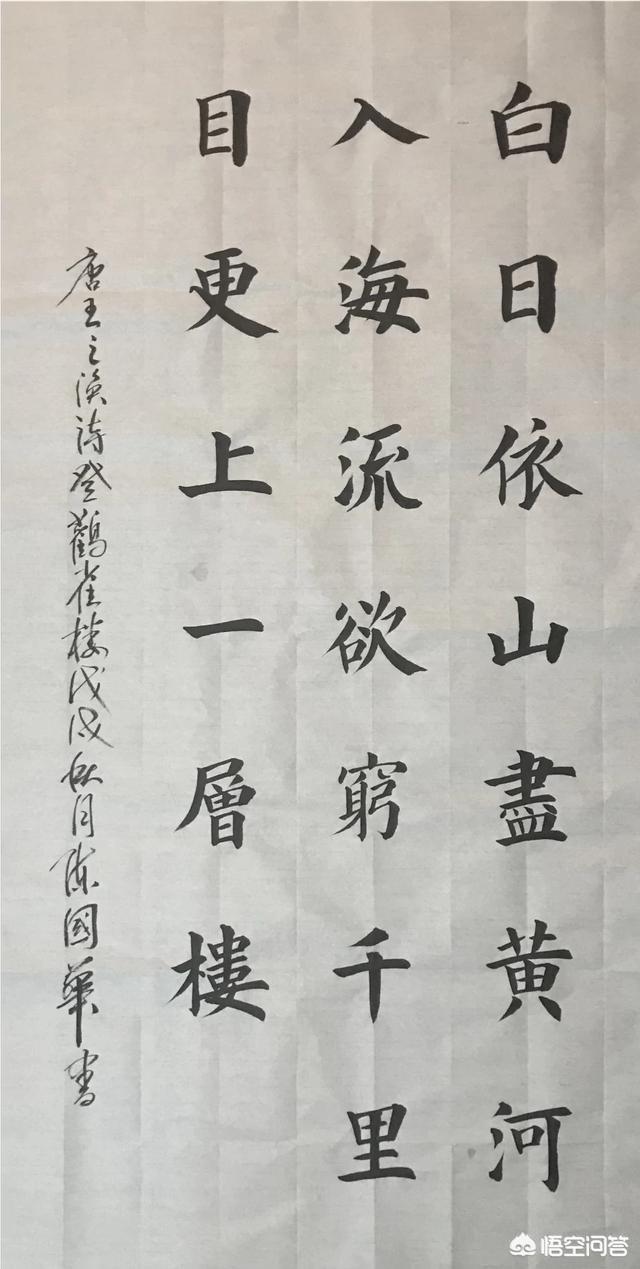 白日依山盡黄河
入海流欲窮千里
目更上一層樓
唐王之渙詩登鸛雀楼戊戌秋月陈國華書
悟空问答